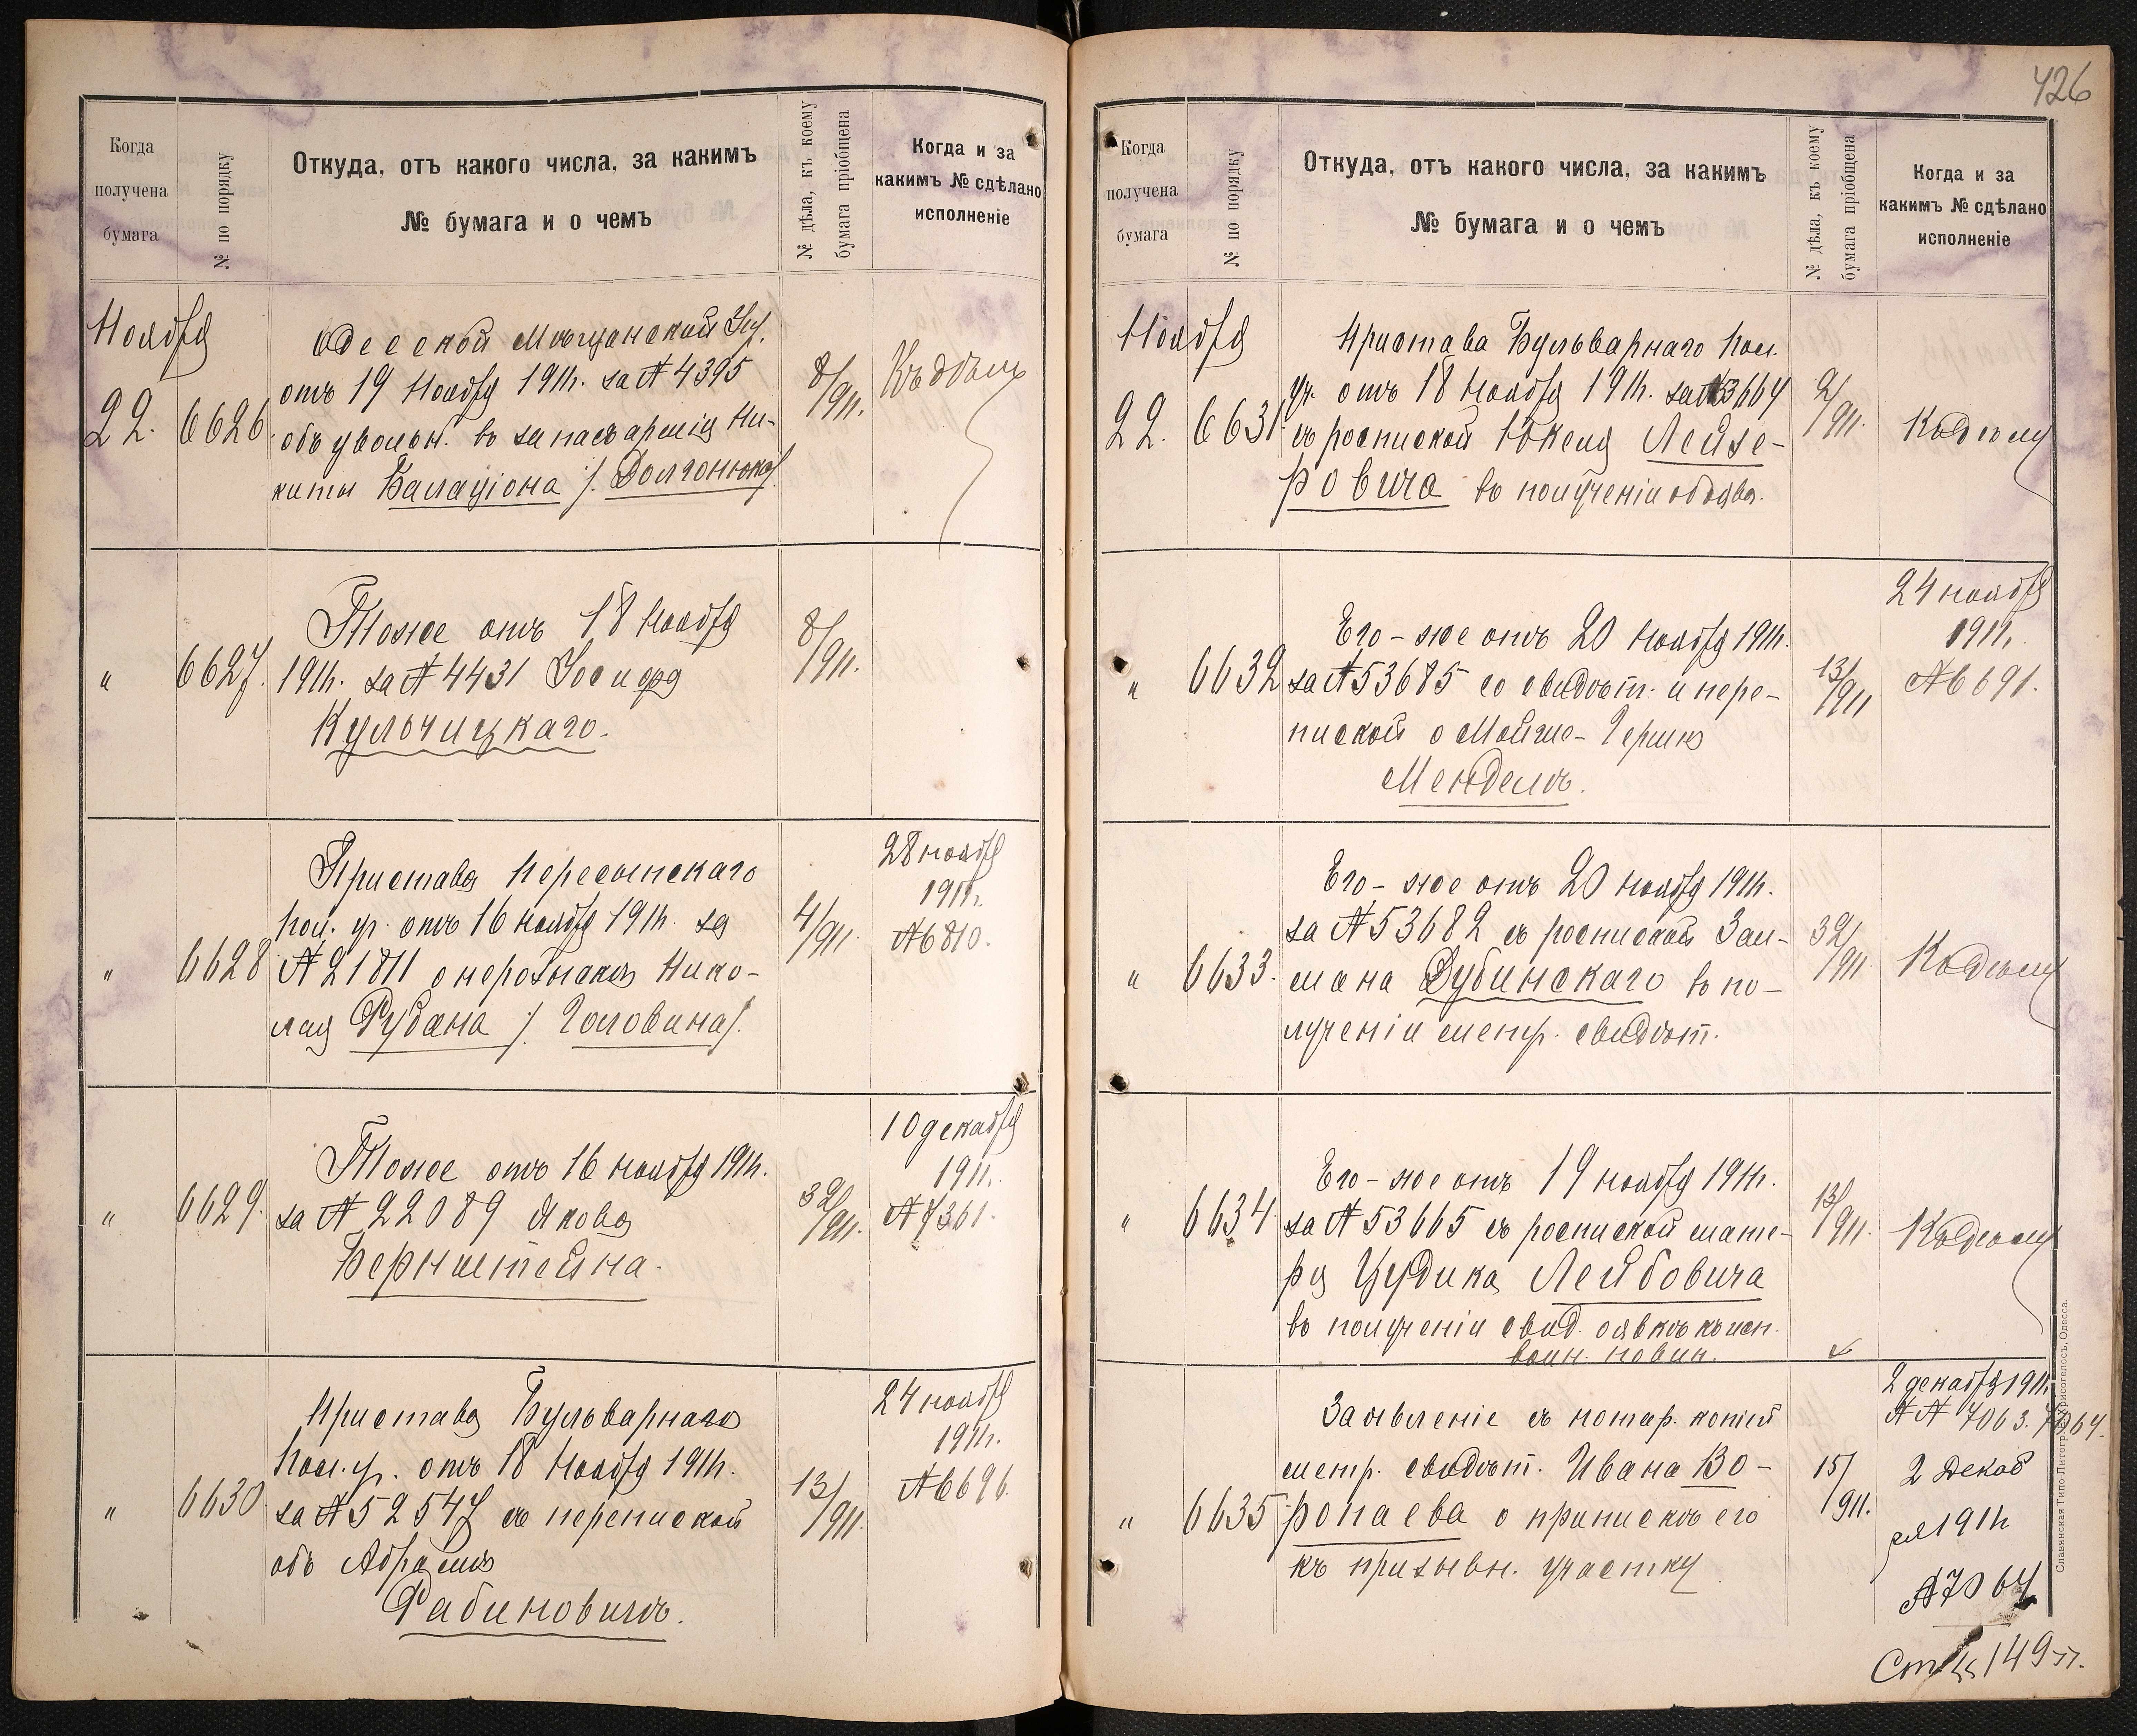 Когда
получена
бумага
№ по порядку
Откуда, отъ какого числа, за какимъ
№ бумага и о чемъ
№ дѣла, къ коему
бумага пріобщена
Когда и за
какимъ № сдѣлано
исполненіе
Ноября
22.
6626.
Одесской Мѣщанской Упр.
отъ 19 Ноября 1911г. за № 4395
объ увольн. въ запасъ арміи Ни-
киты Балаціона /: Долгонюка/
8/911.
Къ дѣлу
"
6627.
Тоже отъ 18 Ноября
1911г. за № 4431 Іосифа
Кульчицкаго.
8/911.
"
6628
Пристава Пересыпскаго
Пол. уч. отъ 16 ноября 1911г. за
№ 21811 о нерозыскѣ Нико-
лая Рубана /: Головина/.
4/911.
28 ноября
1911г.
№ 6810.
"
6629.
Тоже отъ 16 ноября 1911г.
за № 22089 Якова
Бернштейна.
32/911.
10 декабря
1911г.
№ 7361.
"
6630.
Пристава Бульварнаго
Пол. уч. отъ 18 Ноября 1911г.
за № 52547 съ перепиской
объ Абрамѣ
Рабиновичѣ.
13/911.
24 ноября
1911г.
№ 6696.
426
Когда
получена
бумага
№ по порядку
Откуда, отъ какого числа, за какимъ
№ бумага и о чемъ
№ дѣла, къ коему
бумага пріобщена
Когда и за
какимъ № сдѣлано
исполненіе
Ноября
22.
6631.
Пристава Бульварнаго Пол.
уч. отъ 18 Ноября 1911г. за № 3664
съ роспиской Юкеля Лейзе-
ровича въ полученіи объявл.
2/911.
Къ дѣлу
"
6632
Его-же отъ 20 Ноября 1911г.
за № 53685 со свидѣт. и пере-
пиской о Мойше-Гершкѣ
Менделѣ.
13/911
24 ноября
1911г.
№ 6691.
"
6633.
Его-же отъ 20 ноября 1911г.
за № 53682 съ роспиской Зал-
мана Дубинскаго въ по-
лученіи метр. свидѣт.
32/911.
Къ дѣлу
"
6634.
Его-же отъ 19 ноября 1911г.
за № 53665 съ роспиской мате-
ри Цудика Лейбовича
въ полученіи свид. о явкѣ къ исп.
воин. повин.
13/911.
Къ дѣлу
"
6635
Заявленіе съ нотар. копіей
метр. свидѣт. Ивана Во-
ропаева о припискѣ его
къ призывн. участку
15/911.
2 декабря 1911г.
№№ 7063. 7064.
2 Декаб
ря 1911г
№ 7064
Ст. 149
Славянская Типо-Литогр. Одесса.